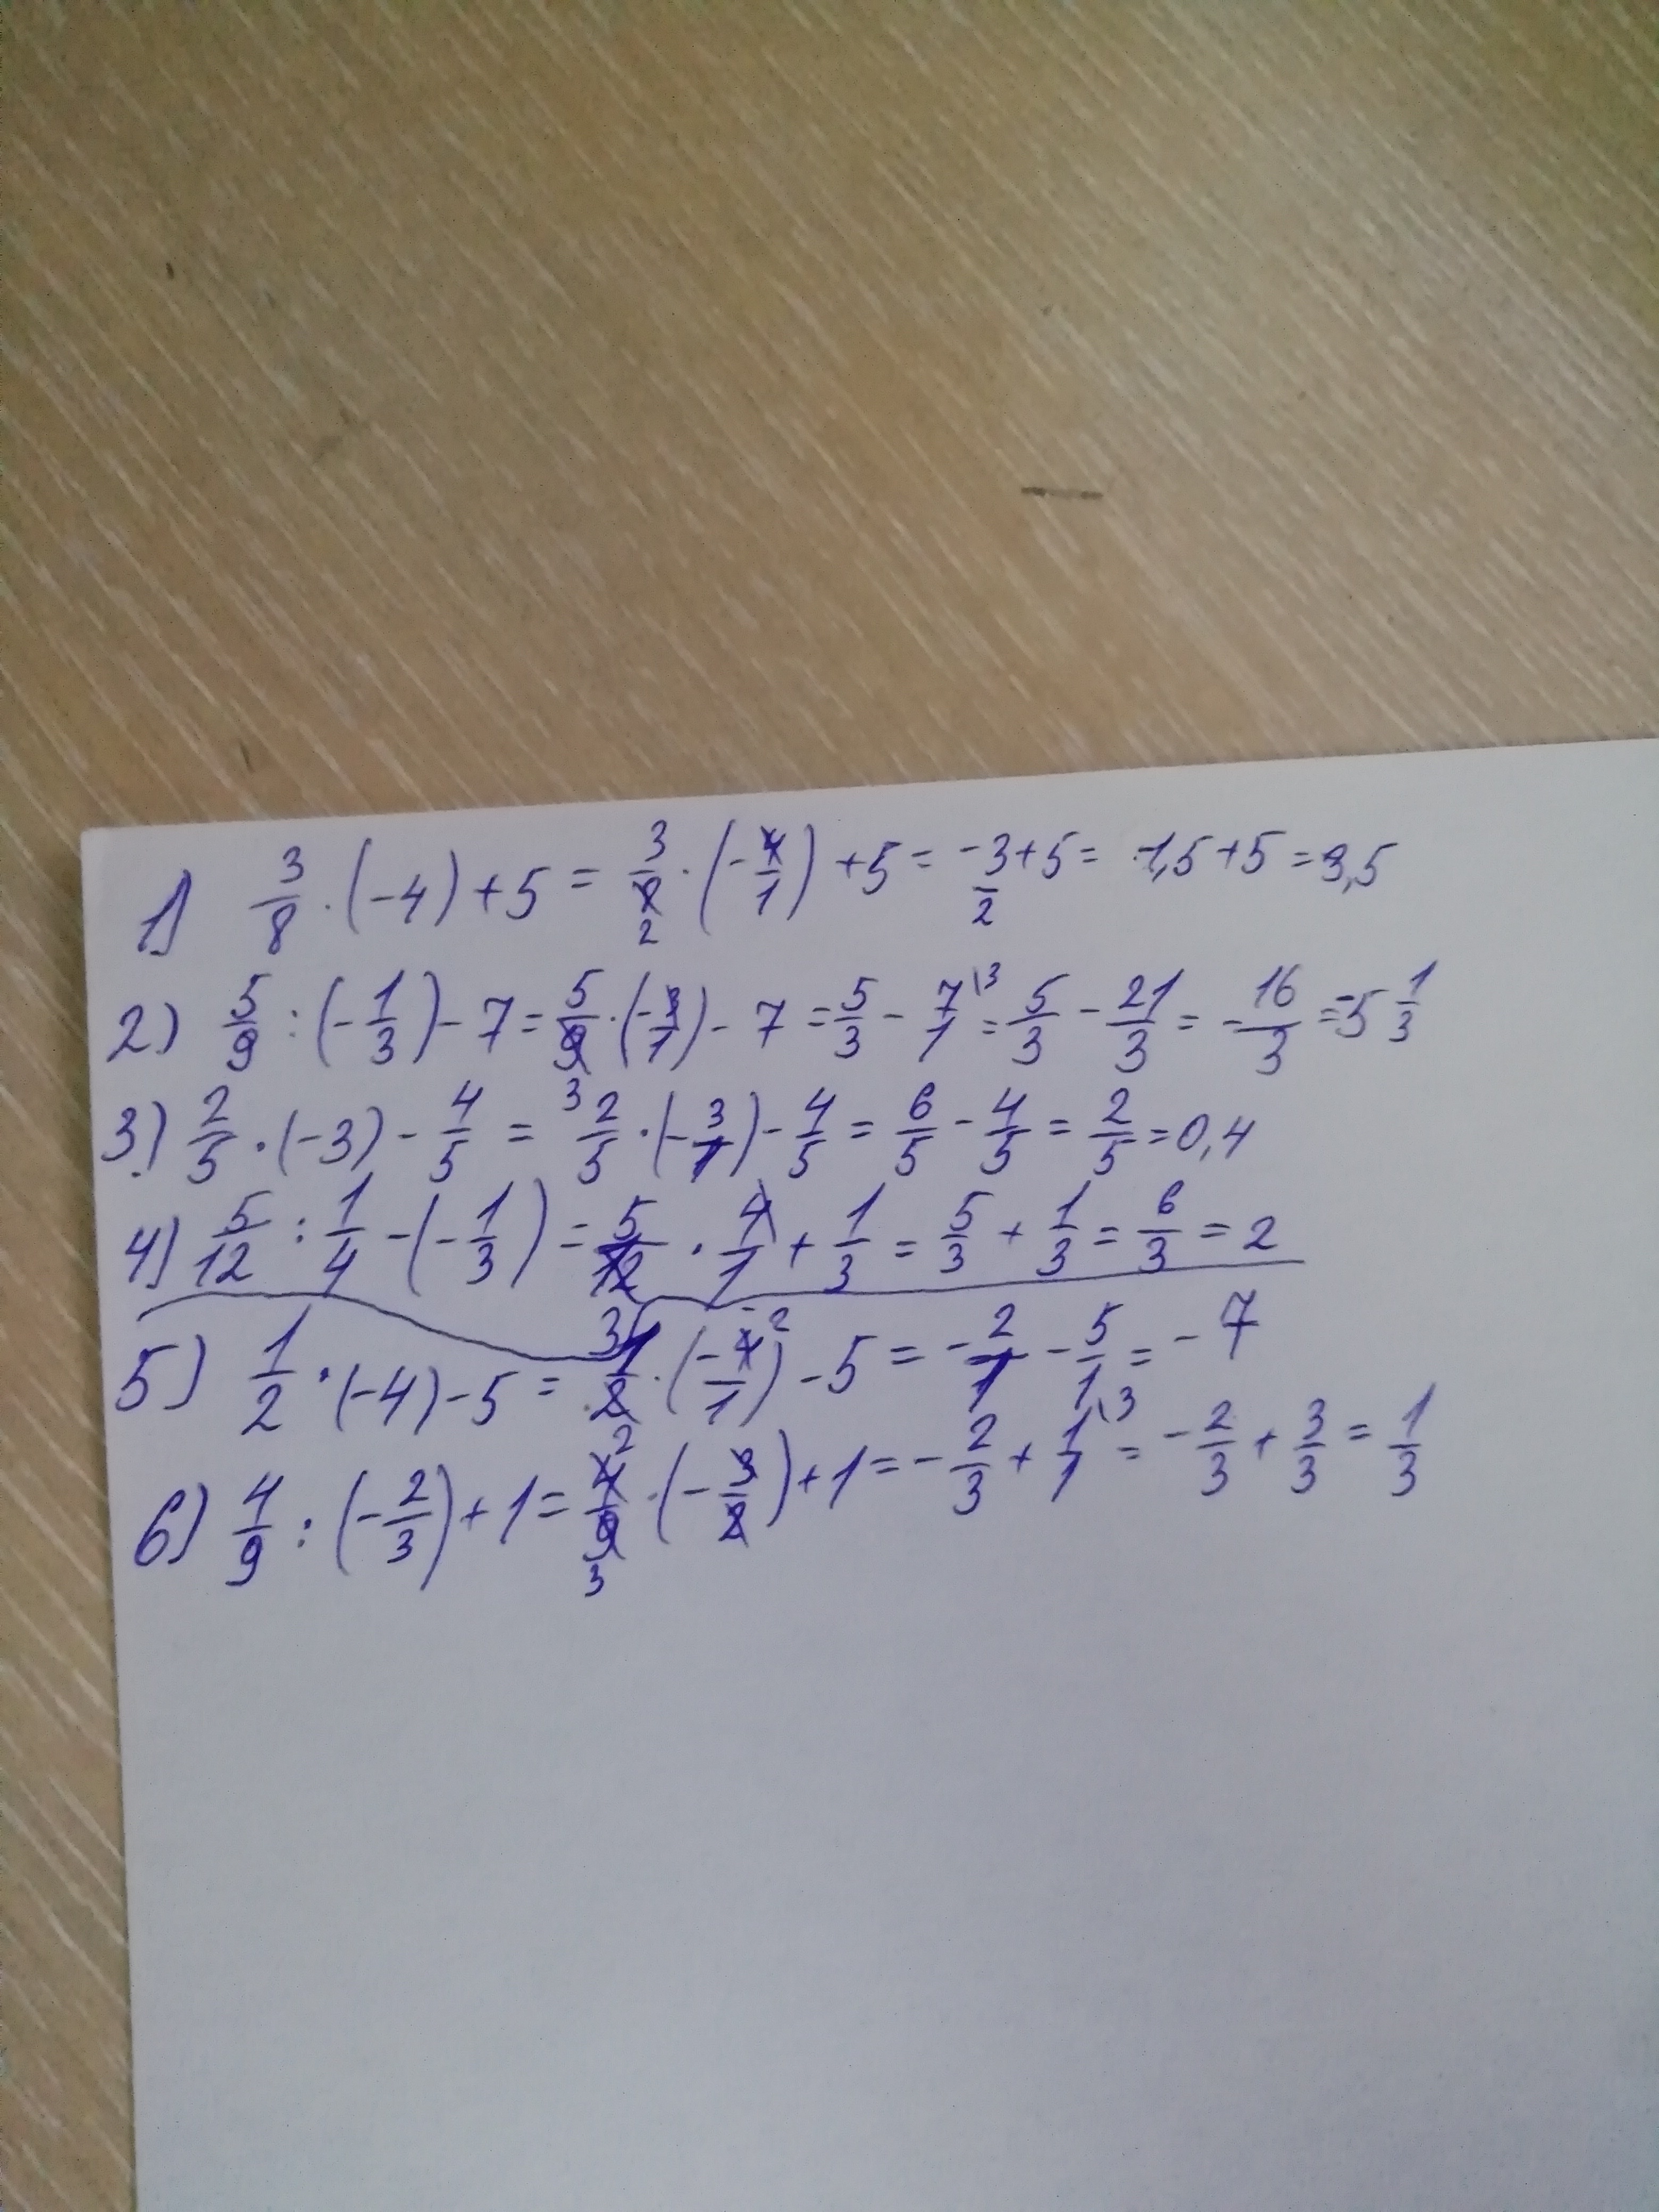 1) 3/8 · (-4) + 5 = 3/8 2 · (-4/1) + 5 = -3/2 + 5 = -1,5 + 5 = 3,5
2) 5/9 : (-1/3) - 7 = 5/9 3 · (-3/1) - 7 = 5/3 - 7/1 \3 = 5/3 - 21/3 = -16/3 = -5 1/3
3) 2/5 · (-3) - 4/5 = 2/5 · (-3/1) - 4/5 = 6/5 - 4/5 = 2/5 = 0,4
4) 5/12 : 1/4 - (-1/3) = 5/12 3 · 4/1 + 1/3 = 5/3 + 1/3 = 6/3 = 2
5) 1/2 · (-4) - 5 = 1/2 · (-4/1 2) - 5 = -2/1 - 5/1 = -7
6) 4/9 : (-2/3) + 1 = 4 2/9 3 · (-3/2) + 1 = -2/3 + 1/1 \3 = -2/3 + 3/3 = 1/3